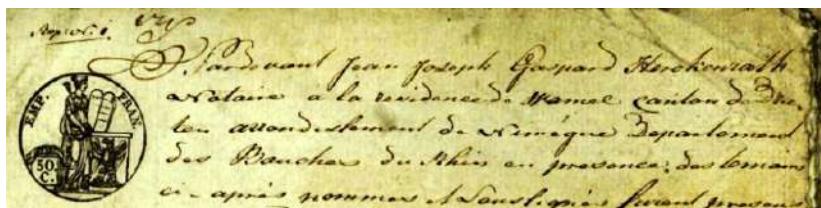 Pardevant Jean Joseph Gaspard Herckenrath
EMP. FRAN.
Notaire a la residence de Wamel canton de Dru-
ten arrondissement de Nimégue Departement
50 C.
des Bouches du Rhin en presence des temoins
ci-après nommés et Soussignés furent presens